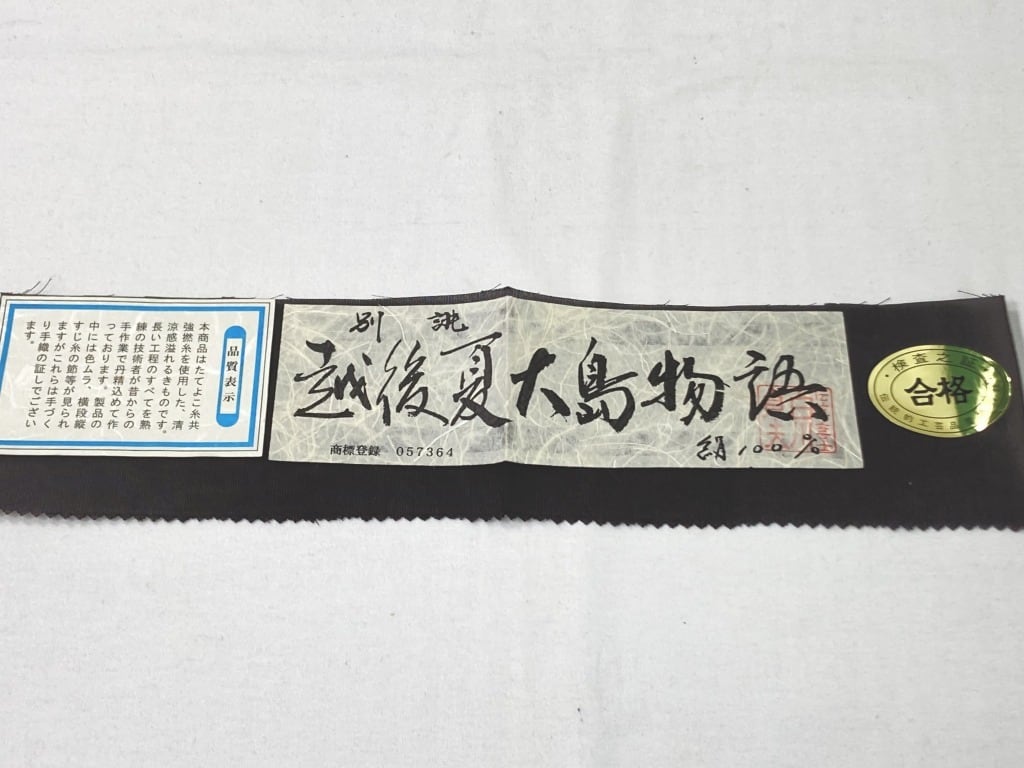 品質表示
本商品はたてよこ糸共
強撚糸を使用した、清
涼感溢れるきものです。
長い工程のすべてを熟
練の技術者が昔からの
手作業で丹精込めて作
っております。製品の
中には色ムラ、横段縦
すじ糸の節等が見られ
ますがこれらは手づく
り手織の証しでござい
ます。
別誂
越後夏大島物語
商標登録 057364
絹100%
・検査之証
合格
伝統的工芸品